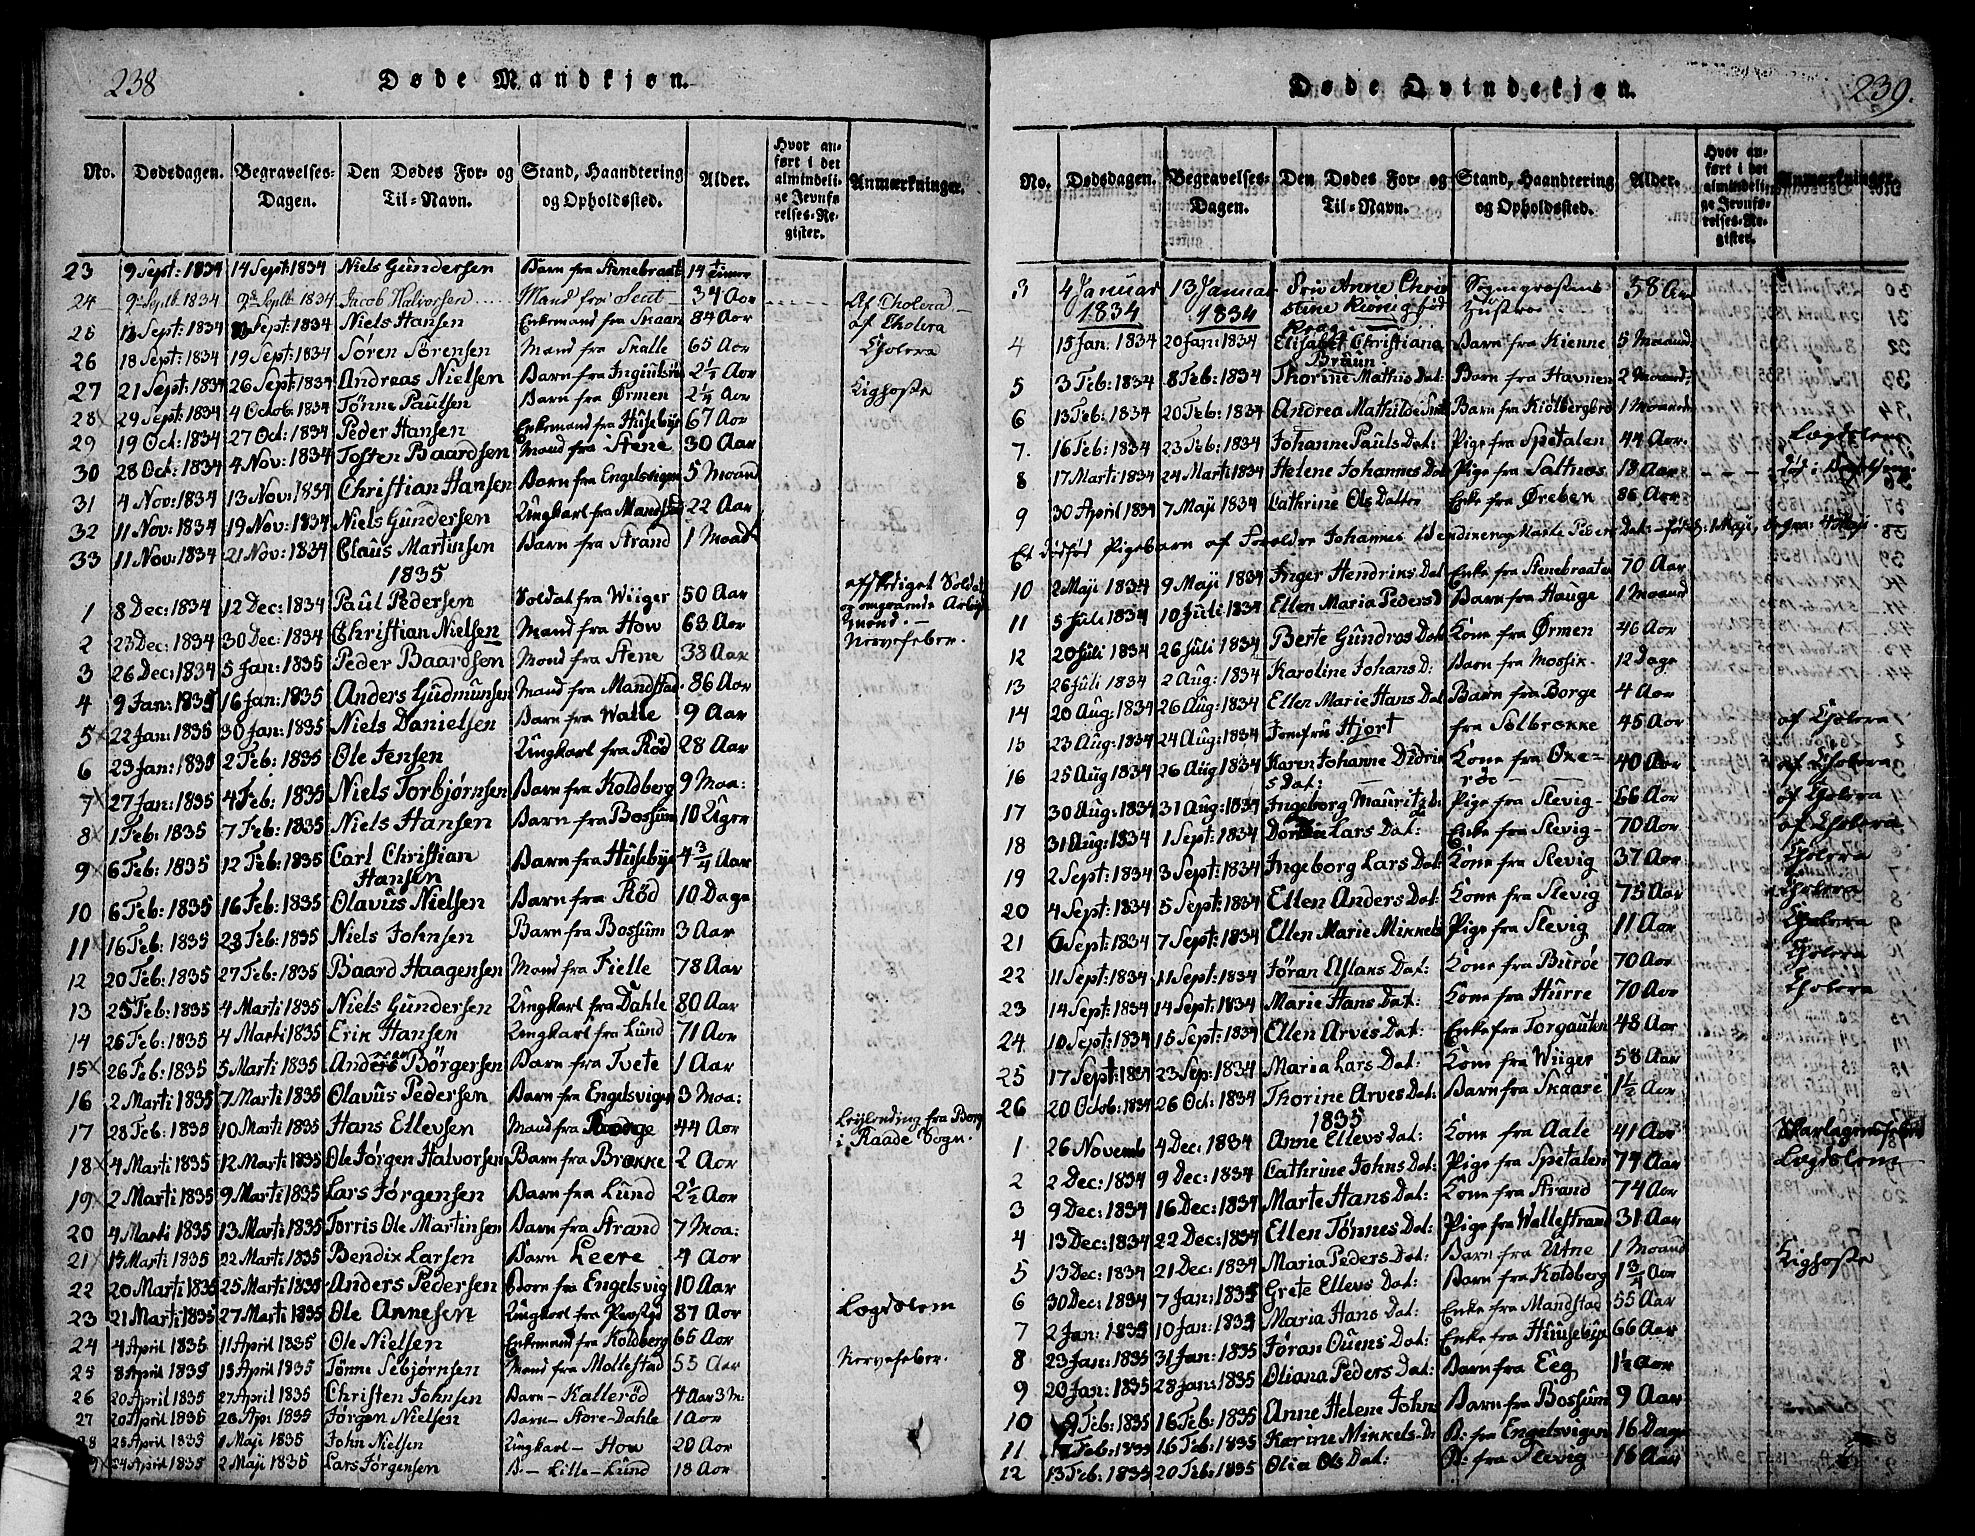 238
Døde Mandkjøn.
No. Dødsdagen. Begravelses-Dagen. Den Dødes For- og Til-Navn. Stand, Haandtering og Opholdssted. Alder. Hvor anført i det almindelige Jevnførelses-Register. Anmærkninger.
23 9 Sept: 1834 14 Sept: 1834 Niels Gundersen Barn fra Stenebraat 14 Timer
24 1834 1834 Jacob Halvorsen Mand fra 34 Aar Af Cholera
25 13 Sept: 1834 Sept: 1834 Niels Hansen Enkemand fra Skaar 84 Aar af Cholera
26 18 Sept: 1834 19 Sept: 1834 Søren Sørensen Mand fra Skalle 65 Aar Cholera
27 21 Sept: 1834 26 Sept: 1834 Andreas Nielsen Barn fra 2½ Aar Kighoste
28 29 Sept: 1834 4 Octob: 1834 Tønne Paulsen Barn fra Ørmen 2¼ Aar
29 19 Oct: 1834 27 Oct: 1834 Peder Hansen Enkemand fra Husebye 67 Aar
30 28 Oct: 1834 4 Nov: 1834 Tosten Baardsen Mand fra Stene 30 Aar
31 4 Nov: 1834 13 Nov: 1834 Christian Hansen Barn fra Engelsvigen 5 Moand
32 11 Nov: 1834 19 Nov: 1834 Niels Gundersen Ungkarl fra Mandstad 22 Aar
33 11 Nov: 1834 21 Nov: 1834 Claus Martinsen Barn fra Strand 1 Moad
1835
1 8 Dec: 1834 12 Dec: 1834 Paul Pedersen Soldat fra Wiiger 50 Aar afskediget Soldat
2 23 Dec: 1834 30 Dec: 1834 Christian Nielsen Mand fra How 63 Aar Nervefeber.
3 26 Dec: 1834 5 Jan: 1835 Peder Baardsen Mand fra Stene 38 Aar
4 9 Jan: 1835 16 Jan: 1835 Anders Gudmunsen Mand fra Mandstad 86 Aar
5 22 Jan: 1835 30 Jan: 1835 Niels Danielsen Barn fra Walle 9 Aar
6 23 Jan: 1835 2 Feb: 1835 Ole Jensen Ungkarl fra Rød 28 Aar
7 27 Jan: 1835 4 Feb: 1835 Niels Torbjørnsen Barn fra Koldberg 9 Moa:
8 1 Feb: 1835 7 Feb: 1835 Niels Hansen Barn fra Bossum 10 Uger
9 6 Feb: 1835 12 Feb: 1835 Carl Christian Hansen Barn fra Husebye 4¾ Aar
10 6 Feb: 1835 16 Feb: 1835 Olavus Nielsen Barn fra Rød 10 Dage
11 16 Feb: 1835 23 Feb: 1835 Niels Johnsen Barn fra Bossum 3 Aar
12 20 Feb: 1835 27 Feb: 1835 Baard Haagensen Mand fra Fielle 78 Aar
13 25 Feb: 1835 4 Marti 1835 Niels Gundersen Ungkarl fra Dahle 80 Aar
14 26 Feb: 1835 4 Marti 1835 Erik Hansen Ungkarl fra Lund 71 Aar
15 26 Feb: 1835 5 Marti 1835 Børgersen Barn fra Tvete 1 Aar
16 2 Marti 1835 7 Marti 1835 Olavus Pedersen Barn fra Engelsvigen 3 Moa:
17 28 Feb: 1835 10 Marti 1835 Hans Ellevsen Mand fra 44 Aar Leylending fra Borg i Raade Sogn.
18 4 Marti 1835 12 Marti 1835 Ole Jørgen Halvorsen Barn fra Brække 2 Aar
19 2 Marti 1835 9 Marti 1835 Lars Jørgensen Barn fra Lund 2½ Aar
20 4 Marti 1835 13 Marti 1835 Torris Ole Martinsen Barn fra Strand 7 Moa:
21 15 Marti 1835 22 Marti 1835 Bendix Larsen Barn Leere 4 Aar
22 20 Marti 1835 25 Marti 1835 Anders Pedersen Barn fra Engelsvig 10 Aar
23 21 Marti 1835 27 Marti 1835 Ole Annesen Ungkarl fra 87 Aar Lægdslem
24 4 April 1835 11 April 1835 Ole Nielsen Enkemand fra Koldberg 65 Aar
25 8 April 1835 15 April 1835 Tønne Sebjørnsen Mand fra Mollestad 53 Aar Nervefeber.
26 20 April 1835 27 April 1835 Christen Johnsen Barn - Kallerød 4 Aar 3 M:
27 20 April 1835 26 Apr: 1835 Jørgen Nielsen Barn - Store-Dahle 1 Aar
28 25 April 1835 1 Maji 1835 John Nielsen Ungkarl - How 20 Aar
24 April 1835 2 Maji 1835 Lars Jørgensen B - Lille-Lund 18 Aar
239.
Døde Qvindekjøn.
No. Dødsdagen. Begravelses-Dagen. Den Dødes For- og Til-Navn. Stand, Haandtering og Opholdssted. Alder. Hvor anført i det almindelige Jevnførelses-Register. Anmærkninger.
3 4 Januar 1834 13 Januar 1834 Anne Christine født Sognepræstens Hustroe 58 Aar
4 15 Jan: 1834 20 Jan: 1834 Elisabet Christiana Bruun Barn fra Kienne 5 Maand
5 3 Feb: 1834 8 Feb: 1834 Thorine Mathis Dat: Barn fra Havnen 2 Moand:
6 13 Feb: 1834 20 Feb: 1834 Andrea Mathilde Barn fra Kiølbergbro 1 Moand
7. 16 Feb: 1834 23 Feb: 1834 Johanne Pauls Dat: Pige fra Spetalen 44 Aar. Lægdslem
8 17 Marti 1834 24 Marti 1834 Helene Johannes Dat Pige fra Saltnæs 18 Aar død i
9 30 April 1834 7 Maji 1834 Cathrine Ols Datter Enke fra Øreben 86 Aar
Et dødfød Pigebarn af Forældre Johannes og Marte Peders Dat: - født: 1 Maji, begra: 4 Maji.
10 2 Maji 1834 9 Maji 1834 Inger Hendriks Dat Enke fra Stenebraaten 70 Aar
11 5 Juli 1834 10 Juli 1834 Ellen Maria Peders D Barn fra Hauge 1 Moand
12 20 Juli 1834 26 Juli 1834 Berte Gundros Dat Kone fra Ørmen 46 Aar
13 26 Juli 1834 2 Aug: 1834 Karoline Johans D: Barn fra Mossik. 12 Dage
14 20 Aug: 1834 26 Aug: 1834 Ellen Marie Hans Dat Barn fra Borge 4 Aar
15 23 Aug: 1834 24 Aug: 1834 Jomfru Hjort fra Solbrække 45 Aar af Cholera
16 25 Aug 1834 26 Aug 1834 Karen Johanne Didriks Dat: Kone fra Oxerøe 40 Aar af Cholera
17 30 Aug: 1834 31 Aug: 1834 Ingeborg Mauritz d: Pige fra Slevig 66 Aar af Cholera
18 31 Aug: 1834 1 Sept: 1834 Lars Dat: Enke fra Slevig 70 Aar af Cholera
19 2 Sept: 1834 3 Sept: 1834 Ingeborg Lars Dat: Kone fra Slevig 37 Aar Cholera
20 4 Sept: 1834 5 Sept: 1834 Ellen Anders Dat: Kone fra Slevig 75 Aar Cholera
21 6 Sept: 1834 7 Sept: 1834 Ellen Marie Mikkels Pige fra Slevig 11 Aar Cholera
22 11 Sept: 1834 11 Sept: 1834 Jøran Elslaks Dat: Kone fra Burøe 70 Aar Cholera
23 14 Sept: 1834 14 Sept: 1834 Marie Hans Dat: Kone fra Hurre 70 Aar Cholera
24 10 Sept: 1834 15 Sept: 1834 Ellen Arves Dat: Enke fra Torgauten 48 Aar
25 17 Sept: 1834 23 Sep: 1834 Maria Lars Dat: Kone fra Wiiger 58 Aar
26 20 Octob: 1834 26 Oct: 1834 Thorine Arves Dat: Barn fra Skaare 1½ Aar
1835
1 26 Novemb 4 Dec: 1834 Anne Ellevs Dat: Kone fra Aale 41 Aar
2 2 Dec: 1834 9 Dec: 1834 Cathrine Johns Dat: Pige fra Spetalen 74 Aar Lægdslem
3 9 Dec: 1834 16 Dec: 1834 Marte Hans Dat: Kone fra Strand 74 Aar
4 13 Dec: 1834 22 Dec: 1834 Ellen Tønnes Dat: Pige fra Wallestrand 31 Aar
5 13 Dec: 1834 21 Dec: 1834 Maria Peders Dat: Barn fra Utne 1 Moand Kighoste
6 30 Dec: 1834 7 Jan: 1835 Grete Ellevs Dat: Barn fra Koldberg 1¾ Aar
7 2 Jan: 1835 10 Jan: 1835 Maria Hans Dat: Enke fra Mandstad 55 Aar
8 23 Jan: 1835 31 Jan: 1835 Jøran Ouens Dat: Enke fra Huusebye 66 Aar
9 20 Jan: 1835 28 Jan: 1835 Oliana Peders Dat: Barn fra Eeg 1½ Aar
10 9 Feb: 1835 16 Feb: 1835 Anne Helene Johns Barn fra Bossum 9 Aar
11 Feb: 1835 16 Feb: 1835 Karine Mikkels D: B: fra Engelsvigen 16 Dage
12 13 Feb: 1835 20 Feb: 1835 Olia Ols Dat: B: fra Slevig 16 Aar